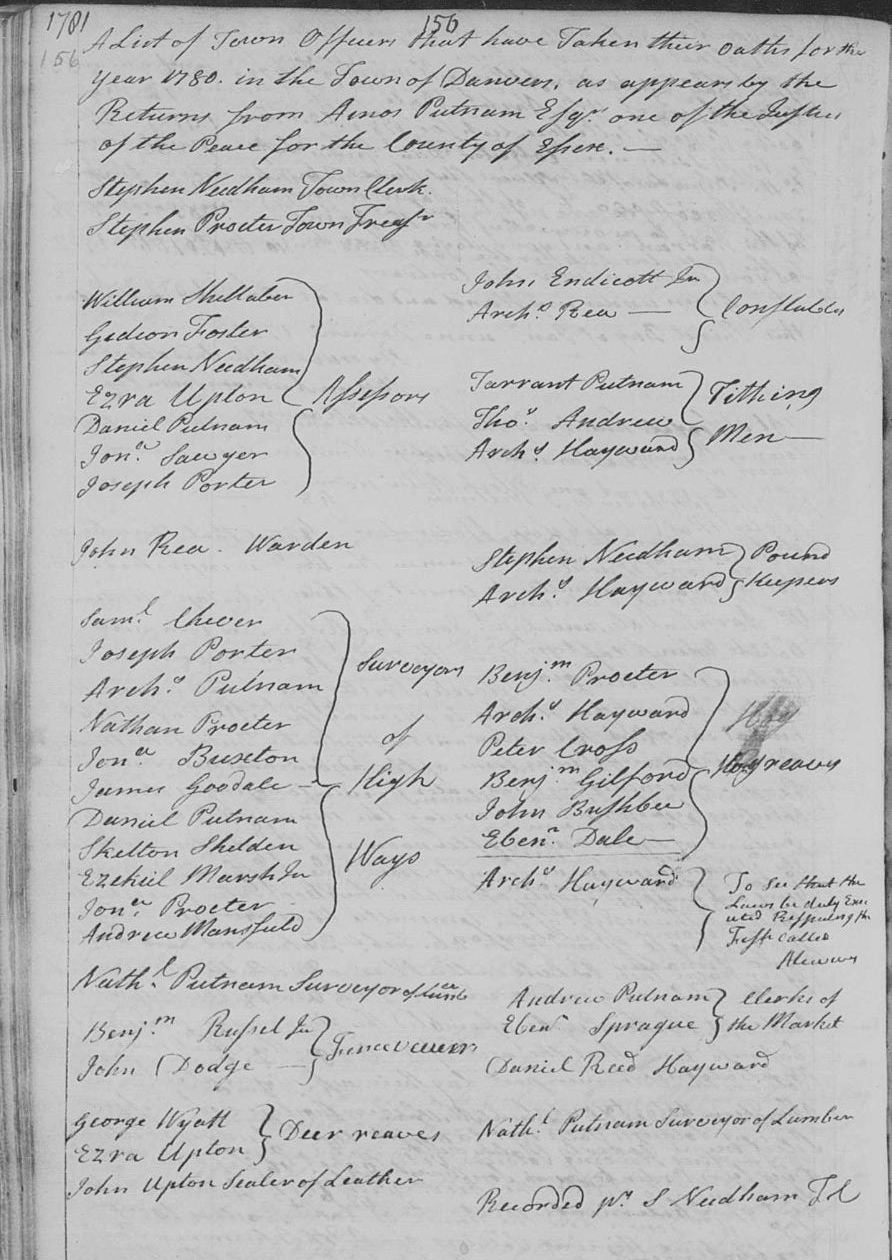 1781
156
156
A List of Town Officers that have Taken their oaths for the
Year 1780. in the Town of Danvers, as appears by the
Returns from Amos Putnam Esqr. one of the Justices
of the Peace for the County of Essex. —
Stephen Needham Town Clerk.
Stephen Procter Town Treasr
William Shillaber
Gedion Foster
Stephen Needham
Ezra Upton
Assessors
Daniel Putnam
Jona. Sawyer
Joseph Porter
John Rea. Warden
Saml. Chever
Joseph Porter
Archs. Putnam
Nathan Procter
Jona. Buxton
James Goodale —
Daniel Putnam
Skelton Shelden
Ezekiel Marsh Jr
Jona. Procter
Andrew Mansfield
Surveyors
of
High
Ways
Nathl. Putnam Surveyor of
Benjm. Russel Jr
John Dodge —
Fence viewers
George Wyatt
Ezra Upton
Deer reaves
John Upton Sealer of Leather
John Endicott Jr
Archs. Rea —
Constables
Tarrant Putnam
Thos. Andrew
Archs. Hayward
Tithing
Men —
Stephen Needham
Archs. Hayward
Pound
Keepers
Benjm. Procter
Archs. Hayward
Peter Cross
Benjm. Gilford
John Bushbee
Ebenr. Dale —
Hog
Hogreaves
Archs. Hayward
To See that the
Laws be duly Exe
cuted Respecting the
Fish Called
Alewives
Andrew Putnam
Ebenr Sprague
Clerks of
the Market
Daniel Reed Hayward
Nathl. Putnam Surveyor of Lumber
Recorded pr. S Needham T Cl